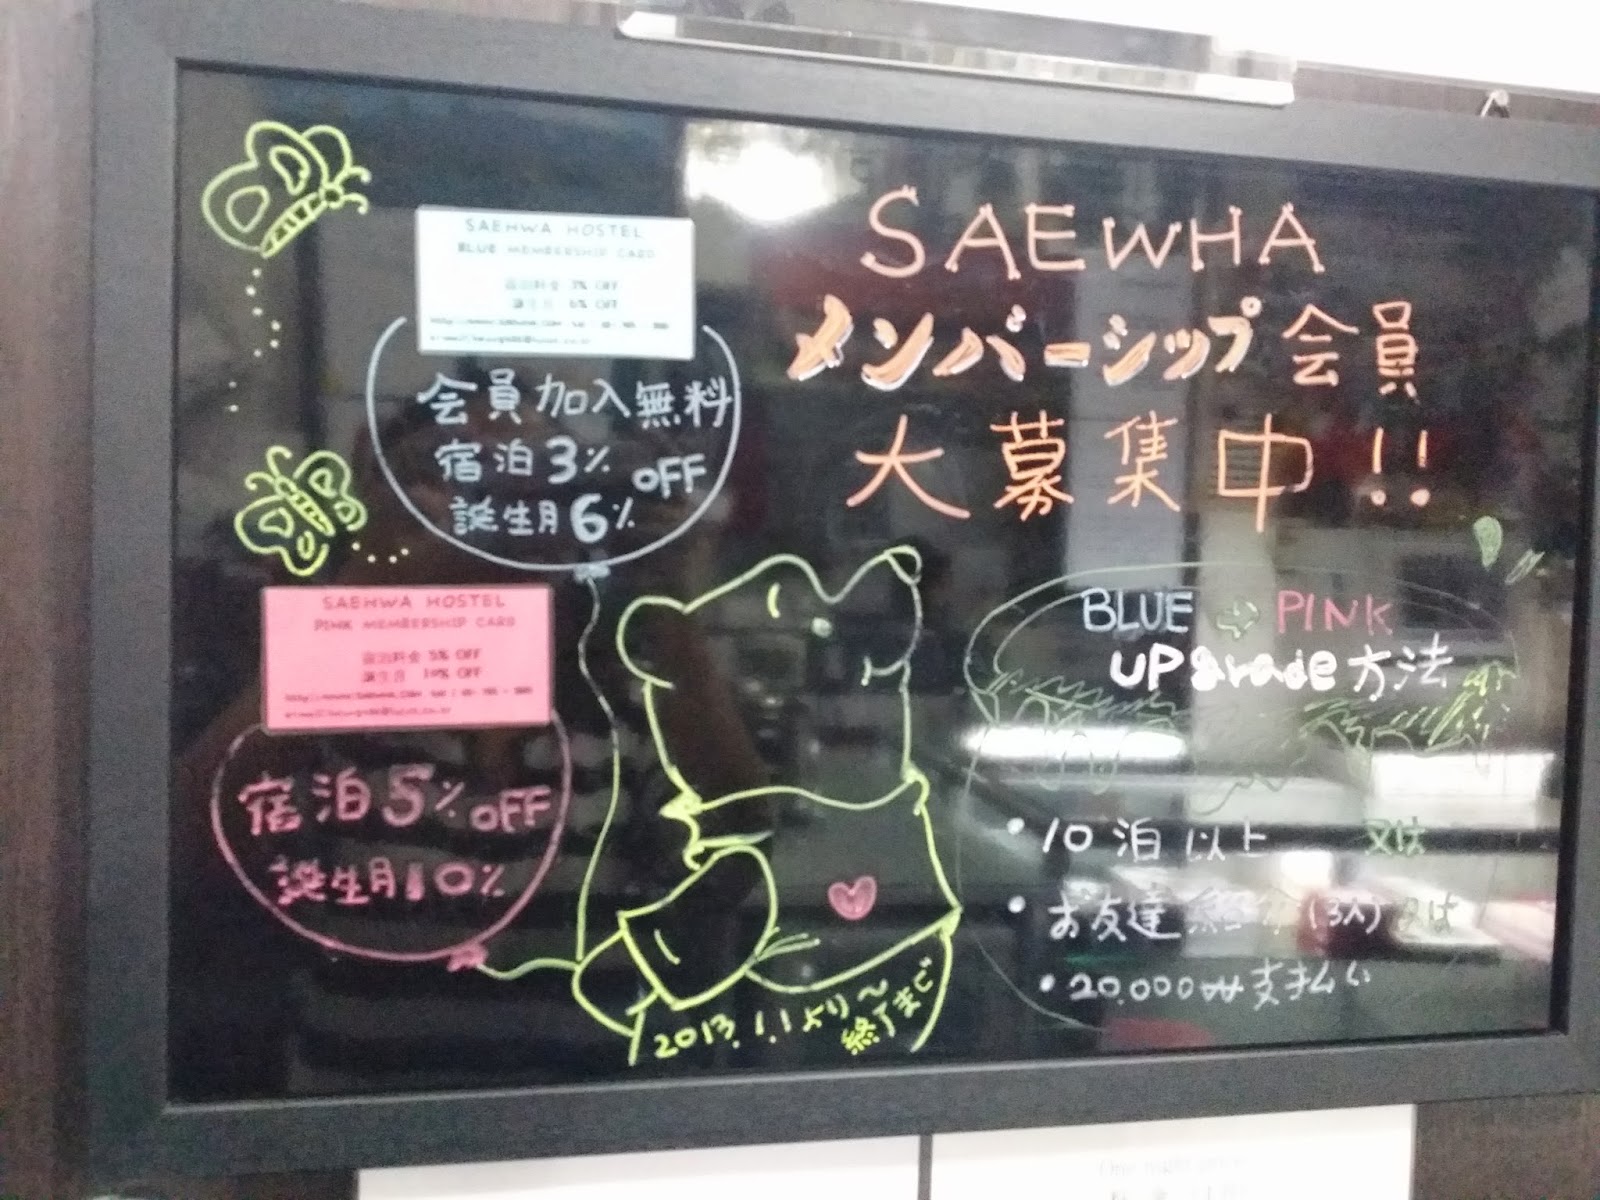 SAEWHA
メンバーシップ会員
大募集中!!
SAEHWA HOSTEL
BLUE MEMBERSHIP CARD
宿泊料金 3% OFF
誕生月 6% OFF
会員加入無料
宿泊3% OFF
誕生月6%
SAEHWA HOSTEL
PINK MEMBERSHIP CARD
宿泊料金 5% OFF
誕生月 10% OFF
宿泊5% OFF
誕生月10%
BLUE ⇨ PINK
UPgrade方法
• 10泊以上 又は
• お友達紹介(3人)又は
• 20,000₩支払い
2013.1.1より〜
終了まで